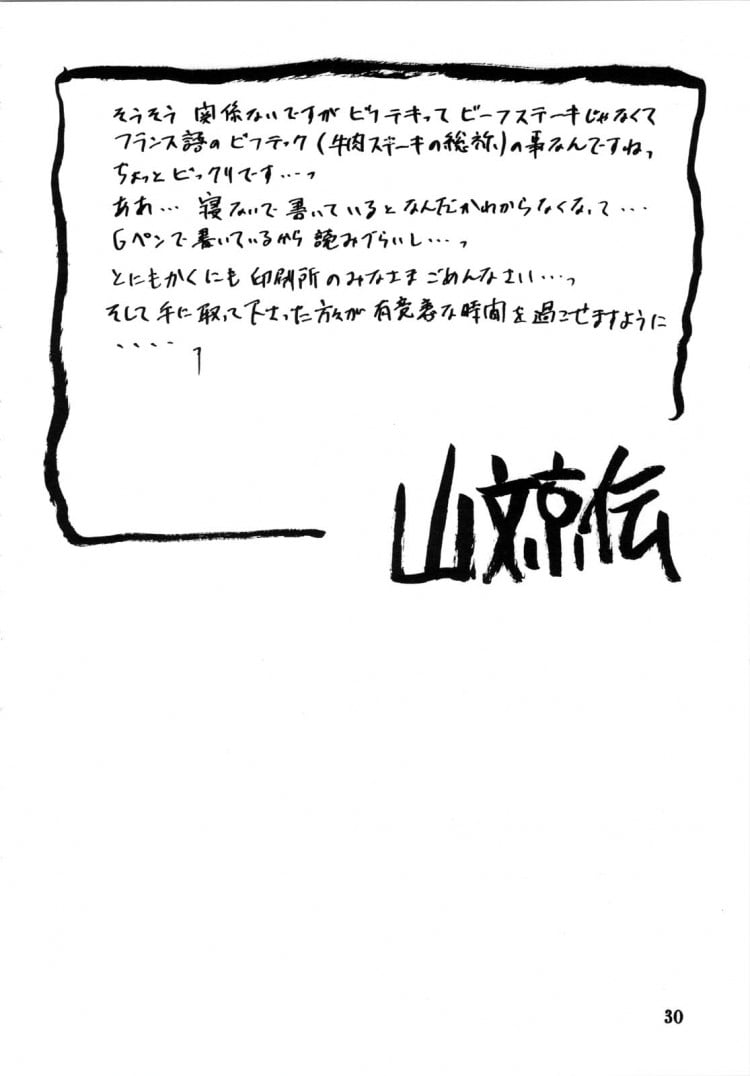 そうそう 関係ないですが ビフテキって ビーフステーキじゃなくて
フランス語の ビフテック (牛肉ステーキの総称) の事なんですねっ
ちょっと ビックリです…っ
ああ… 寝ないで 書いていると なんだかわからなくなって…
Gペンで書いているから 読みづらいし…っ
とにもかくにも 印刷所のみなさま ごめんなさい…っ
そして 手に取って下さった方々が 有意義な時間を過ごせますように
....
山文京伝
30